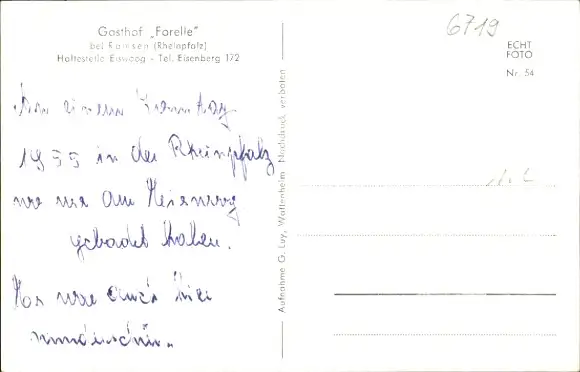 Gasthof „Forelle"
bei Ramsen (Rheinpfalz)
Haltestelle Eiswoog - Tel. Eisenberg 172
6719
ECHT
FOTO
Nr. 54
An einem Sonntag
1955 in der Rheinpfalz
wo wir am
gebadet haben.
war auch hier
wunderschön.
Aufnahme G. Luy, Wattenheim Nachdruck verboten